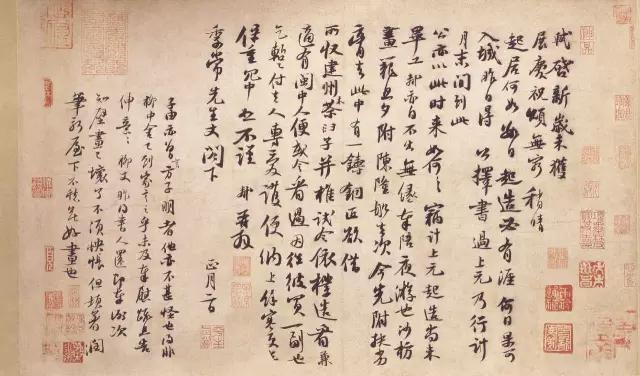 軾啓新歲未獲
展慶祝頌無窮稍晴
起居何如數日起造必有涯何日果可
入城昨日得公擇書過上元乃行計
月末間到此
公亦以此時來如何々竊計上元起造尚未
畢工軾亦自不出無緣奉陪夜游也沙枋
畫籠旦夕附陳隆船去次今先附扶劣
膏去此中有一鑄銅匠欲借
所收建州木茶臼子并椎試令依樣造看兼
適有閩中人便或令看過因往彼買一副也
乞蹔付去人專愛護便納上餘寒更乞
保重冗中恕不謹 軾再拜
季常先生丈閣下
正月二日
子由亦曾言方子明者他亦不甚怪也得非
柳中舍已到家言之乎未及奉慰疏且告
伸意々柳丈昨得書人還即奉謝次
知壁畫已壞了不須怏悵但頓著潤
筆新屋下不愁無好畫也